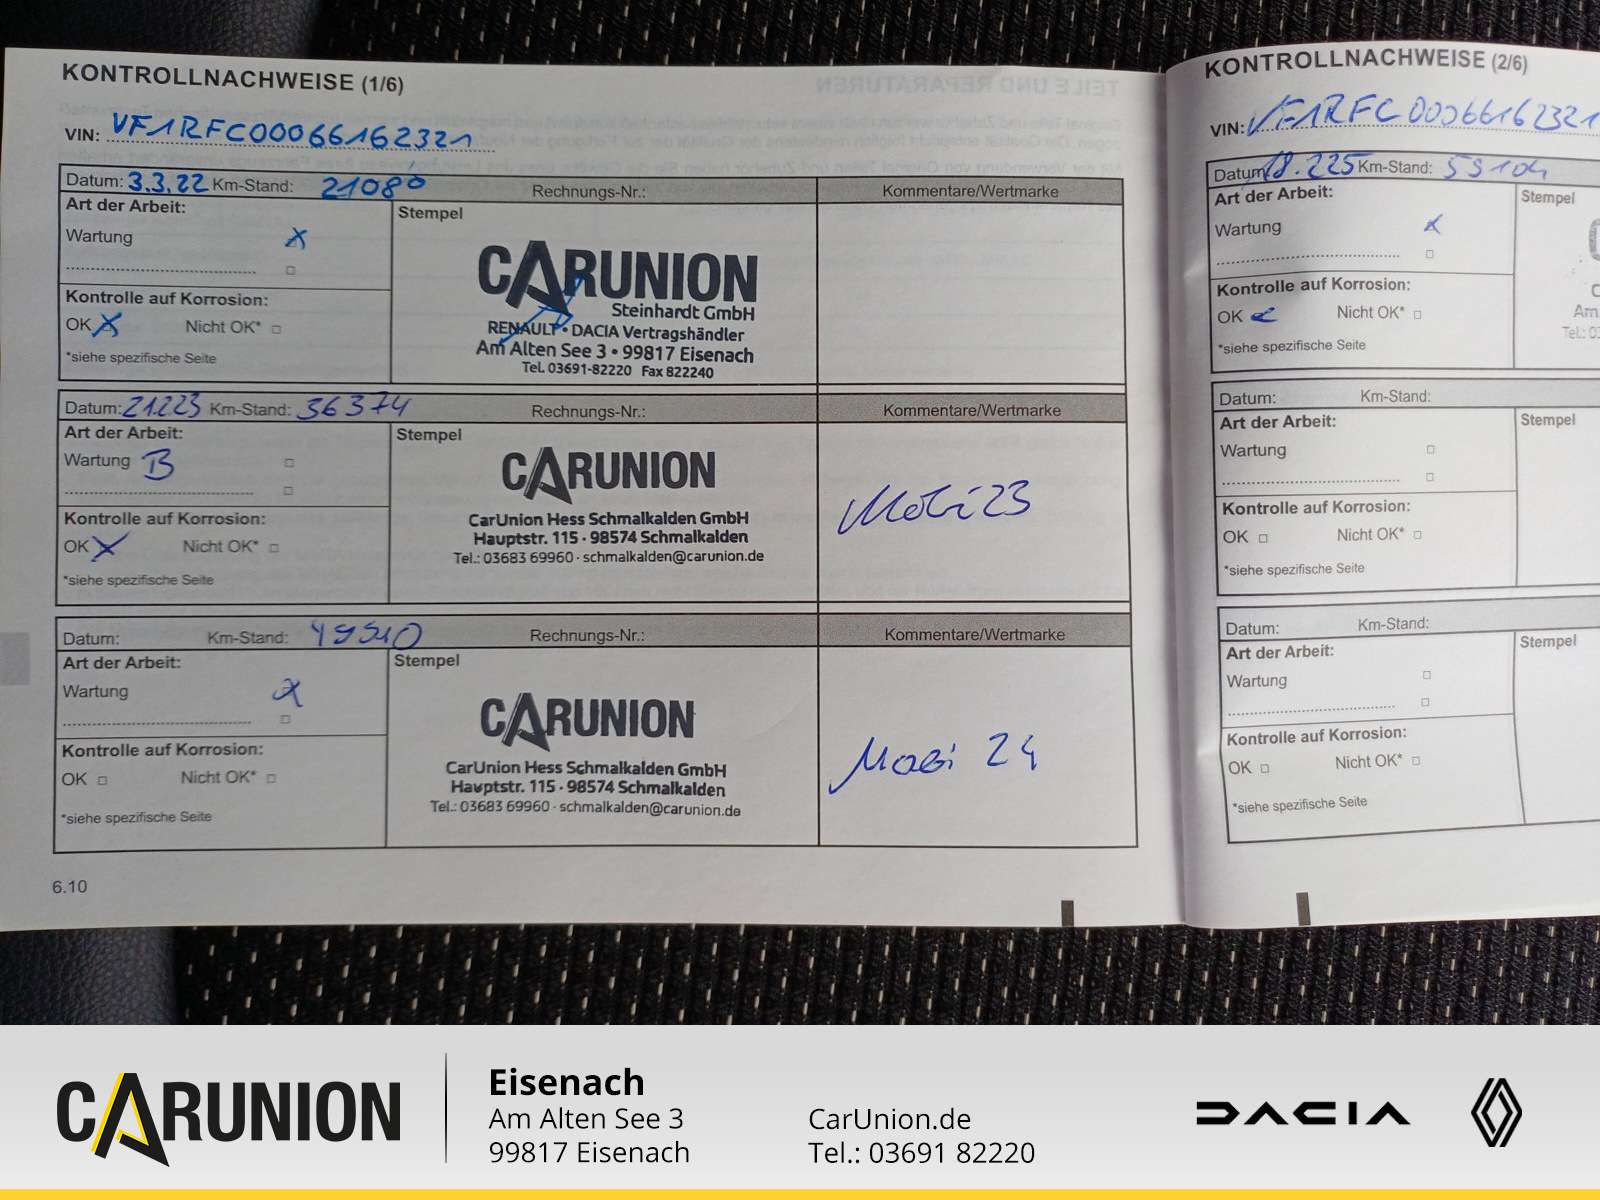 KONTROLLNACHWEISE (1/6)
VIN: VF1RFC00066162321
Datum: 3.3.22 Km-Stand: 21080 Rechnungs-Nr.: Kommentare/Wertmarke
Art der Arbeit: Stempel
Wartung X
Kontrolle auf Korrosion:
OK X Nicht OK*
*siehe spezifische Seite
CARUNION
Steinhardt GmbH
RENAULT • DACIA Vertragshändler
Am Alten See 3 • 99817 Eisenach
Tel. 03691-82220 Fax 822240
Datum: 21.2.23 Km-Stand: 36374 Rechnungs-Nr.: Kommentare/Wertmarke
Art der Arbeit: Stempel
Wartung B
Kontrolle auf Korrosion:
OK X Nicht OK*
*siehe spezifische Seite
CARUNION
CarUnion Hess Schmalkalden GmbH
Hauptstr. 115 · 98574 Schmalkalden
Tel.: 03683 69960 · schmalkalden@carunion.de
Mobi 23
Datum: Km-Stand: Rechnungs-Nr.: Kommentare/Wertmarke
Art der Arbeit: Stempel
Wartung X
Kontrolle auf Korrosion:
OK Nicht OK*
*siehe spezifische Seite
CARUNION
CarUnion Hess Schmalkalden GmbH
Hauptstr. 115 · 98574 Schmalkalden
Tel.: 03683 69960 · schmalkalden@carunion.de
Mobi 24
6.10
KONTROLLNACHWEISE (2/6)
VIN: VF1RFC00066162321
Datum: Km-Stand:
Art der Arbeit: Stempel
Wartung X
Kontrolle auf Korrosion:
OK Nicht OK*
*siehe spezifische Seite
Am
Datum: Km-Stand:
Art der Arbeit: Stempel
Wartung
Kontrolle auf Korrosion:
OK Nicht OK*
*siehe spezifische Seite
Datum: Km-Stand:
Art der Arbeit: Stempel
Wartung
Kontrolle auf Korrosion:
OK Nicht OK*
*siehe spezifische Seite
CARUNION
Eisenach
Am Alten See 3
99817 Eisenach
CarUnion.de
Tel.: 03691 82220
DACIA